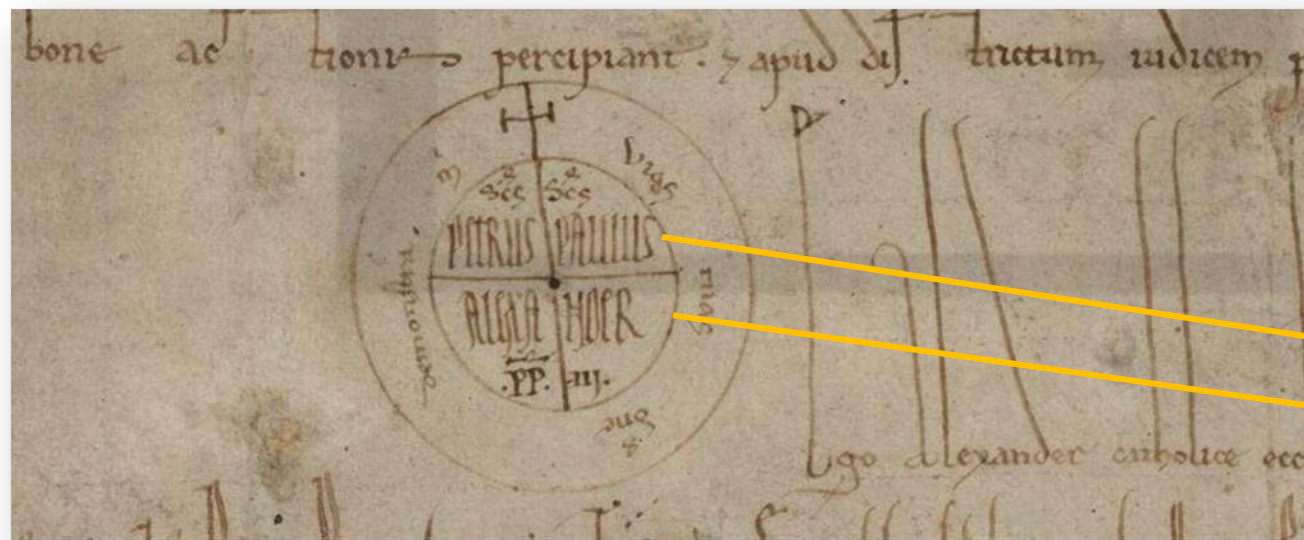 bone ac tionis percipiant . ⁊ apud dis trictum iudicem
Scs Scs
PETRUS PAULUS
ALEXA NDER
.PP. .III.
Vias
tuas
dne
Ego Alexander catholice ecc